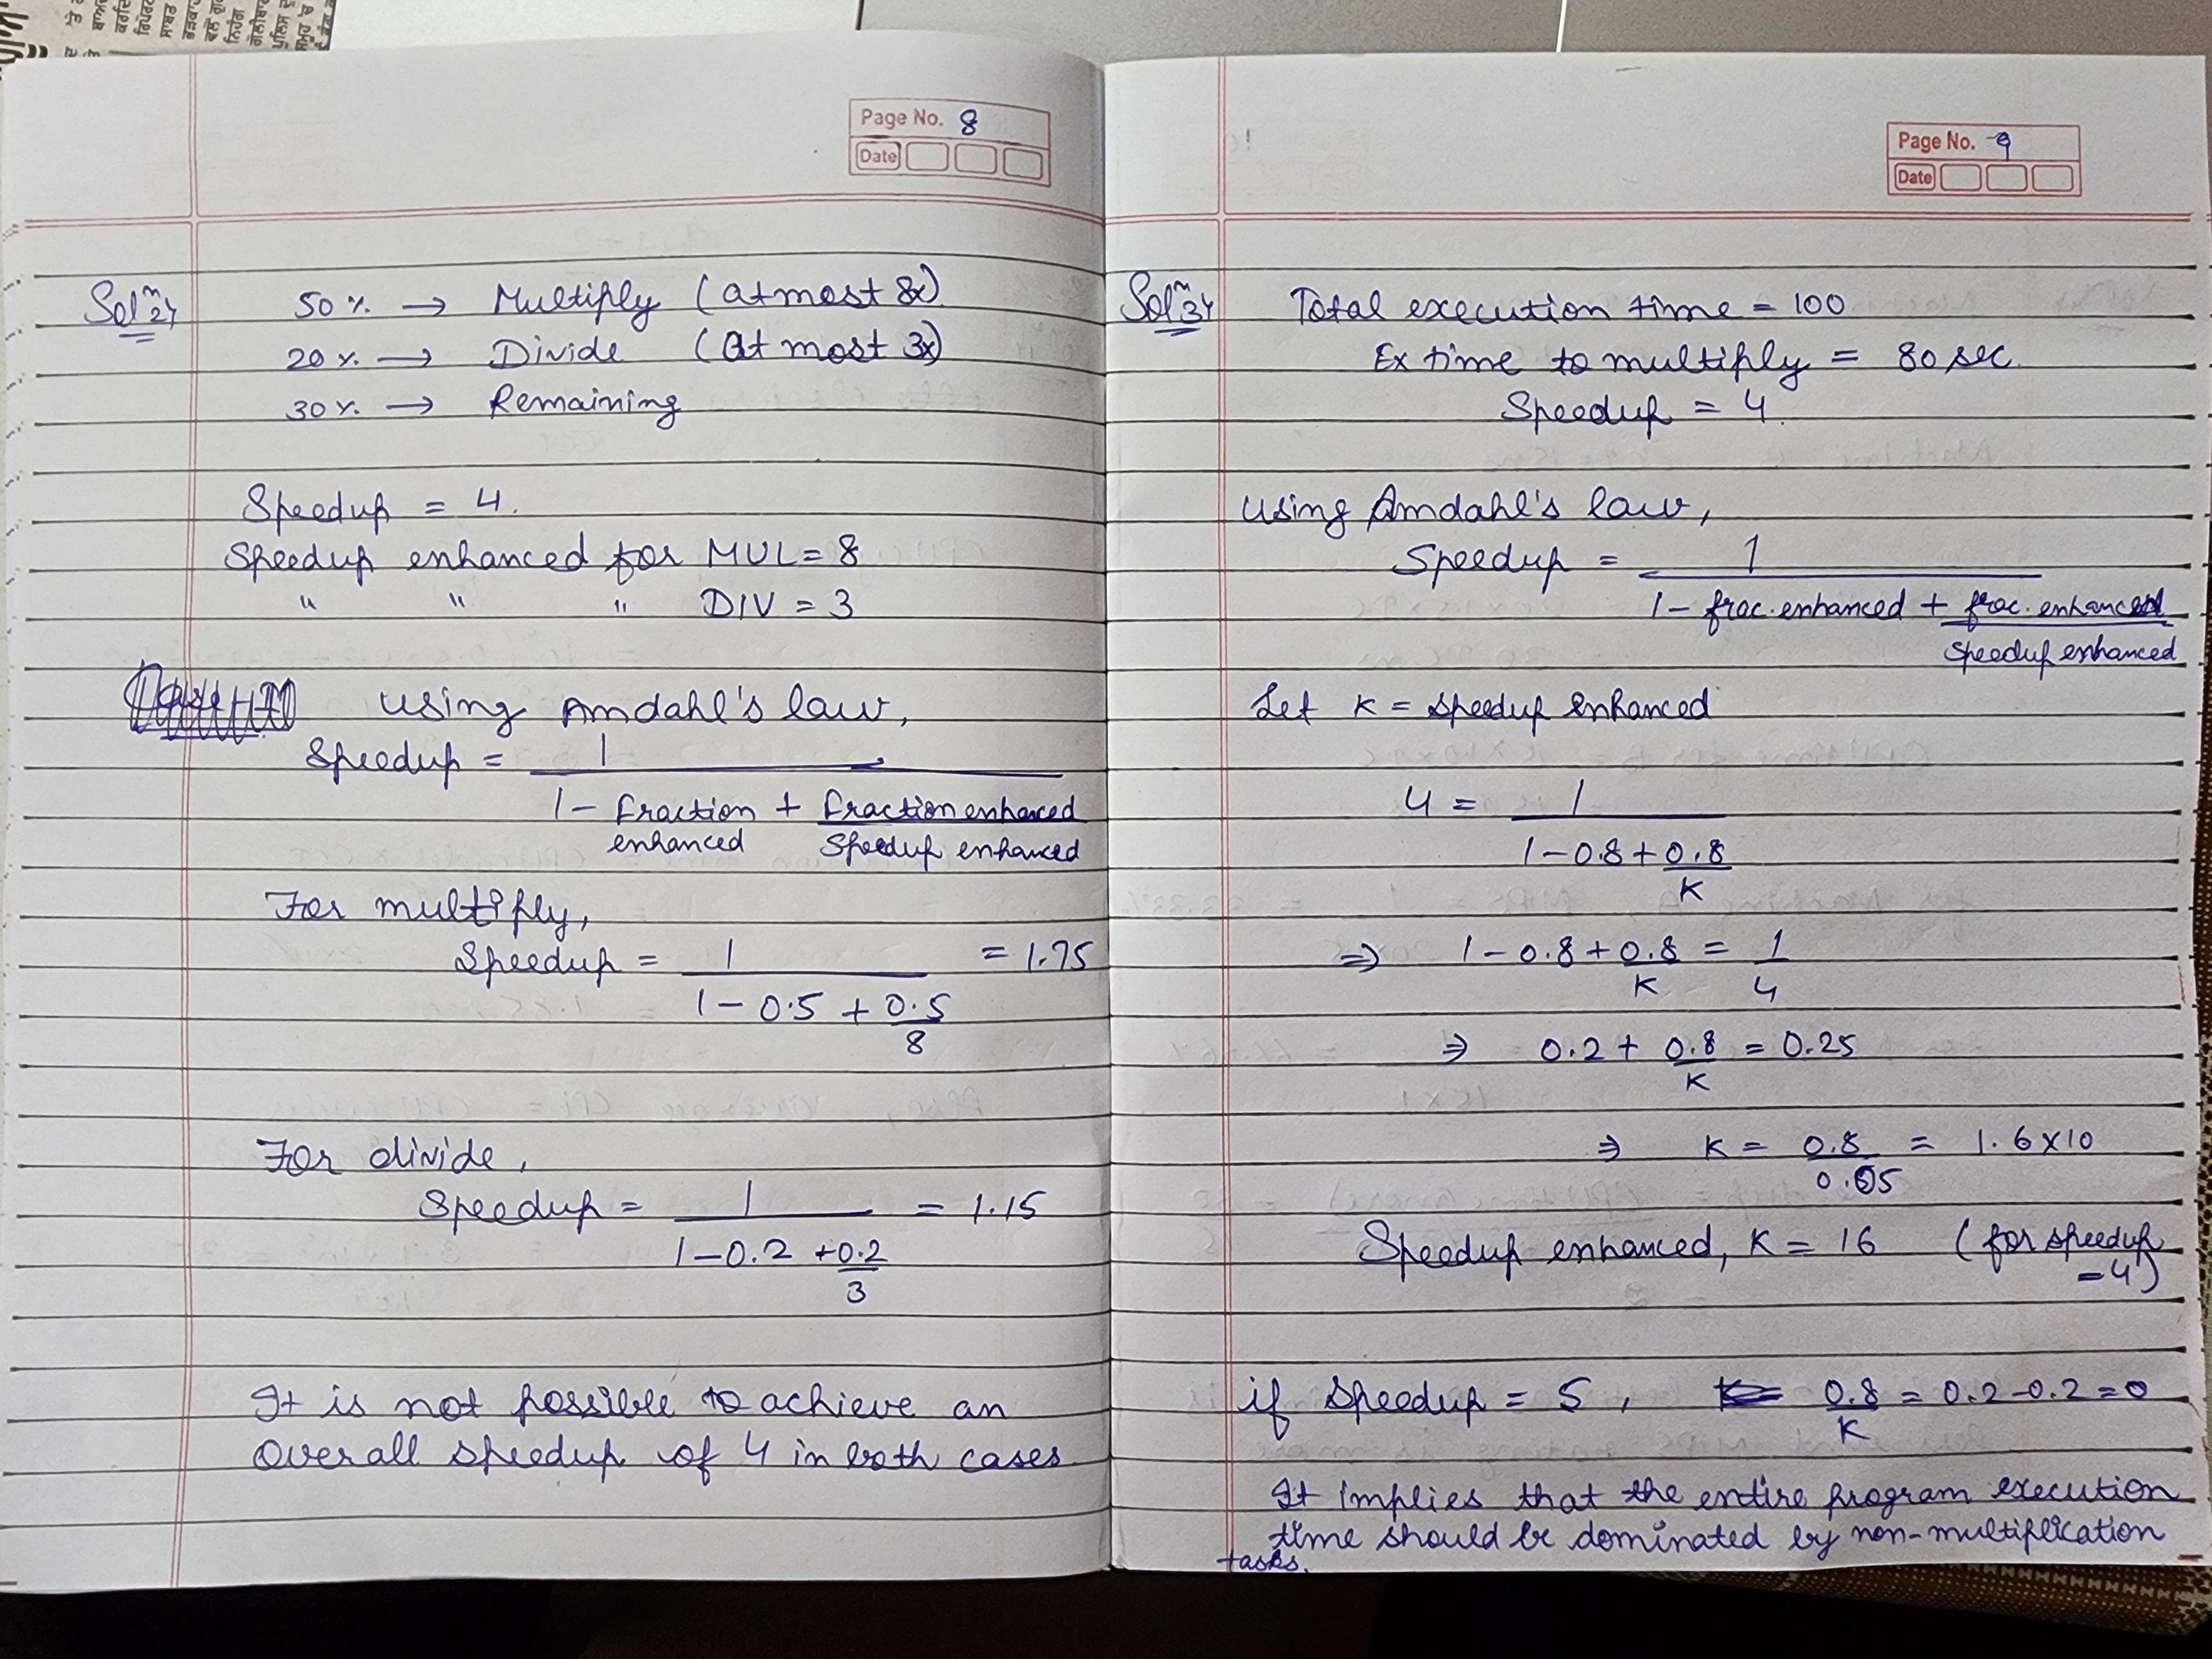 Page No. 8
Date
Solⁿ 2)
50% → Multiply (at most 8x)
20% → Divide (at most 3x)
30% → Remaining
Speedup = 4.
Speedup enhanced for MUL = 8
" " " DIV = 3
using Amdahl's law,
Speedup = 1
1 - fraction enhanced + fraction enhanced / Speedup enhanced
For multiply,
Speedup = 1 / (1 - 0.5 + 0.5/8) = 1.75
For divide,
Speedup = 1 / (1 - 0.2 + 0.2/3) = 1.15
It is not possible to achieve an
overall speedup of 4 in both cases
Page No. 9
Date
Solⁿ 3)
Total execution time = 100
Ex time to multiply = 80 sec.
Speedup = 4.
using Amdahl's law,
Speedup = 1
1 - frac. enhanced + frac. enhanced / speedup enhanced
Let K = speedup enhanced
4 = 1 / (1 - 0.8 + 0.8/K)
⇒ 1 - 0.8 + 0.8/K = 1/4
⇒ 0.2 + 0.8/K = 0.25
⇒ K = 0.8/0.05 = 1.6 x 10
Speedup enhanced, K = 16 (for speedup
= 4)
if speedup = 5, 0.8/K = 0.2 - 0.2 = 0
It implies that the entire program execution
time should be dominated by non-multiplication
tasks.